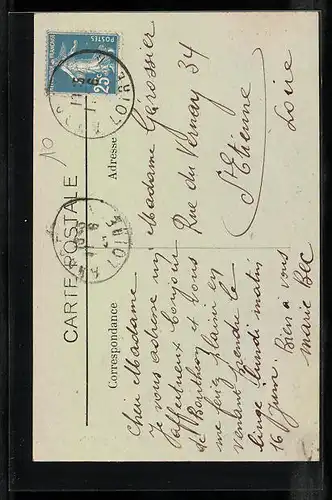 CARTE POSTALE
Correspondance
Adresse
10
POSTES
25c
LOIRE
LOIRE
Chère Madame
Je vous adresse mon
affectueux bonjour
de et vous
me ferez plaisir en
venant prendre le
linge lundi matin
16 Juin. Bien à vous
Marie Bec
Madame Garossier
Rue du Vernay 34
St Etienne
Loire